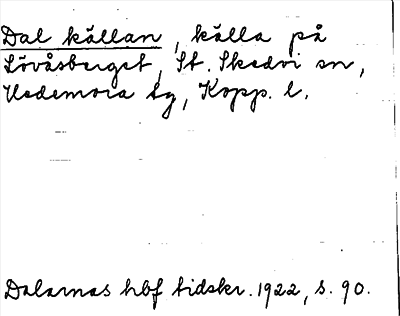 Dal källan, källa på
Lövåsberget, St. Skedvi sn,
Hedemora tg, Kopp. l.
Dalarnas hbf tidskr. 1922, s. 90.